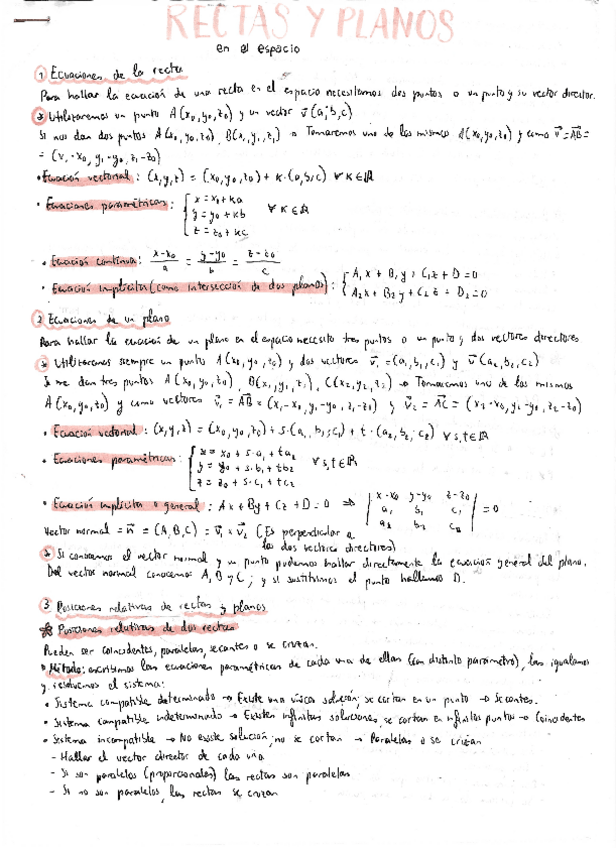 RECTAS Y PLANOS
en el espacio
1 Ecuaciones de la recta
Para hallar la ecuación de una recta en el espacio necesitamos dos puntos o un punto y su vector director.
Utilizaremos un punto A(x₀,y₀,z₀) y un vector v⃗(a,b,c)
Si nos dan dos puntos A(x₀,y₀,z₀), B(x₁,y₁,z₁) → Tomaremos uno de los mismos A(x₀,y₀,z₀) y como v⃗=AB⃗=
=(x₁-x₀, y₁-y₀, z₁-z₀)
• Ecuación vectorial: (x,y,z) = (x₀,y₀,z₀) + k·(a,b,c) ∀k∈ℝ
• Ecuaciones paramétricas: { x = x₀+ka
y = y₀+kb ∀k∈ℝ
z = z₀+kc
• Ecuación continua: (x-x₀)/a = (y-y₀)/b = (z-z₀)/c
• Ecuación implícita (como intersección de dos planos): { A₁x + B₁y + C₁z + D₁ = 0
A₂x + B₂y + C₂z + D₂ = 0
2 Ecuaciones de un plano
Para hallar la ecuación de un plano en el espacio necesito tres puntos o un punto y dos vectores directores
Utilizaremos siempre un punto A(x₀,y₀,z₀) y dos vectores v⃗₁=(a₁,b₁,c₁) y v⃗(a₂,b₂,c₂)
Si me dan tres puntos A(x₀,y₀,z₀), B(x₁,y₁,z₁), C(x₂,y₂,z₂) → Tomaremos uno de los mismos
A(x₀,y₀,z₀) y como vectores v⃗₁ = AB⃗ = (x₁-x₀, y₁-y₀, z₁-z₀) y v⃗₂ = AC⃗ = (x₂-x₀, y₂-y₀, z₂-z₀)
• Ecuación vectorial: (x,y,z) = (x₀,y₀,z₀) + s·(a₁,b₁,c₁) + t·(a₂,b₂,c₂) ∀s,t∈ℝ
• Ecuaciones paramétricas: { x = x₀ + s·a₁ + ta₂
y = y₀ + s·b₁ + tb₂ ∀s,t∈ℝ
z = z₀ + s·c₁ + tc₂
• Ecuación implícita o general: Ax + By + Cz + D = 0 ⇒ | x-x₀ y-y₀ z-z₀ |
| a₁ b₁ c₁ | = 0
| a₂ b₂ c₂ |
Vector normal = n⃗ = (A,B,C) = v⃗₁ x v⃗₂ (Es perpendicular a
los dos vectores directores)
Si conocemos el vector normal y un punto podemos hallar directamente la ecuación general del plano.
Del vector normal conocemos A, B y C; y si sustituimos el punto hallamos D.
3 Posiciones relativas de rectas y planos
Posiciones relativas de dos rectas
Pueden ser coincidentes, paralelas, secantes o se cruzan.
• Método: escribimos las ecuaciones paramétricas de cada una de ellas (con distinto parámetro), las igualamos
y resolvemos el sistema:
• Sistema compatible determinado → Existe una única solución; se cortan en un punto → Secantes.
• Sistema compatible indeterminado → Existen infinitas soluciones, se cortan en infinitos puntos → Coincidentes
• Sistema incompatible → No existe solución; no se cortan → Paralelas o se cruzan
- Hallar el vector director de cada una
- Si son paralelos (proporcionales) las rectas son paralelas
- Si no son paralelos, las rectas se cruzan